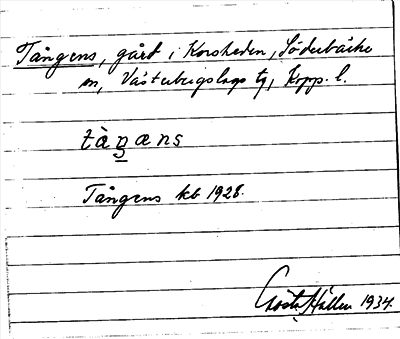 Tångens, gård i Korsheden, Söderbärke
sn, Västerbergslags tg, Kopp. l.
tàŋæns
Tångens kb 1928.
Gösta Hallén 1934.